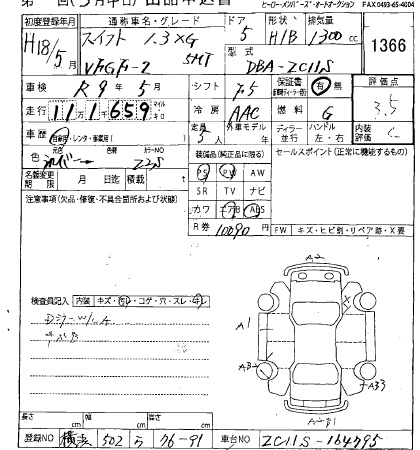 ヒーロー・メンバーズ・オートオークション FAX 0493-65-4004
初度登録年月 通称車名・グレード ドア 形状 排気量
H18/5月 スイフト 1.3XG 5 H/B 1300cc 1366
5MT 型式
DBA-ZC11S
車検 R9年5月 シフト F5 保証書 有 無 評価点
3.5
走行 111,659 マイル キロ 冷房 AAC 燃料 G
車歴 自家用・レンタ・事業用( ) 定員 5人 外車モデル ディーラー 並行 ハンドル 左・右 内装評価 C
元色 色替 カラーNO
色 シルバー Z2S 装備品(純正品に限る) セールスポイント(正常に機能するもの)
名義変更期限 月 日迄 積載 t PS PW AW
注意事項(欠品・修復・不具合箇所および状態) SR TV ナビ
カワ エアB ABS
R券 10090円 FW キズ・ヒビ割・リペア跡・X要
検査員記入 内装 キズ・汚レ・コゲ・穴・スレ・キレ
A2
X
A1
AB2
AB3
長さ cm 幅 cm 高さ cm
登録NO 502 ら 76-91 車台NO ZC11S-164795